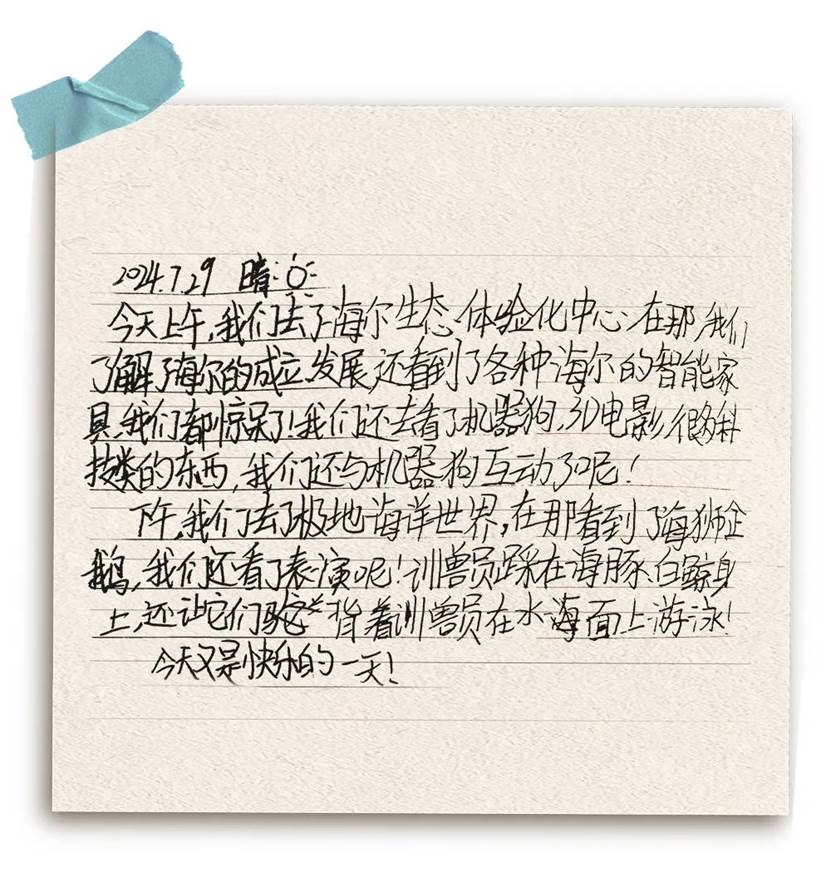 2024.7.29 晴
今天上午,我们去了海尔生态体验化中心.在那,我们
了解了海尔的成立、发展,还看到了各种海尔的智能家
具,我们都惊呆了!我们还去看了机器狗、3D电影,很多科
技类的东西,我们还与机器狗互动了呢!
下午,我们去了极地海洋世界,在那看到了海狮企
鹅,我们还看了表演呢!训兽员踩在海豚、白鲸身
上,还让它们驼背着训兽员在水海面上游泳!
今天又是快乐的一天!